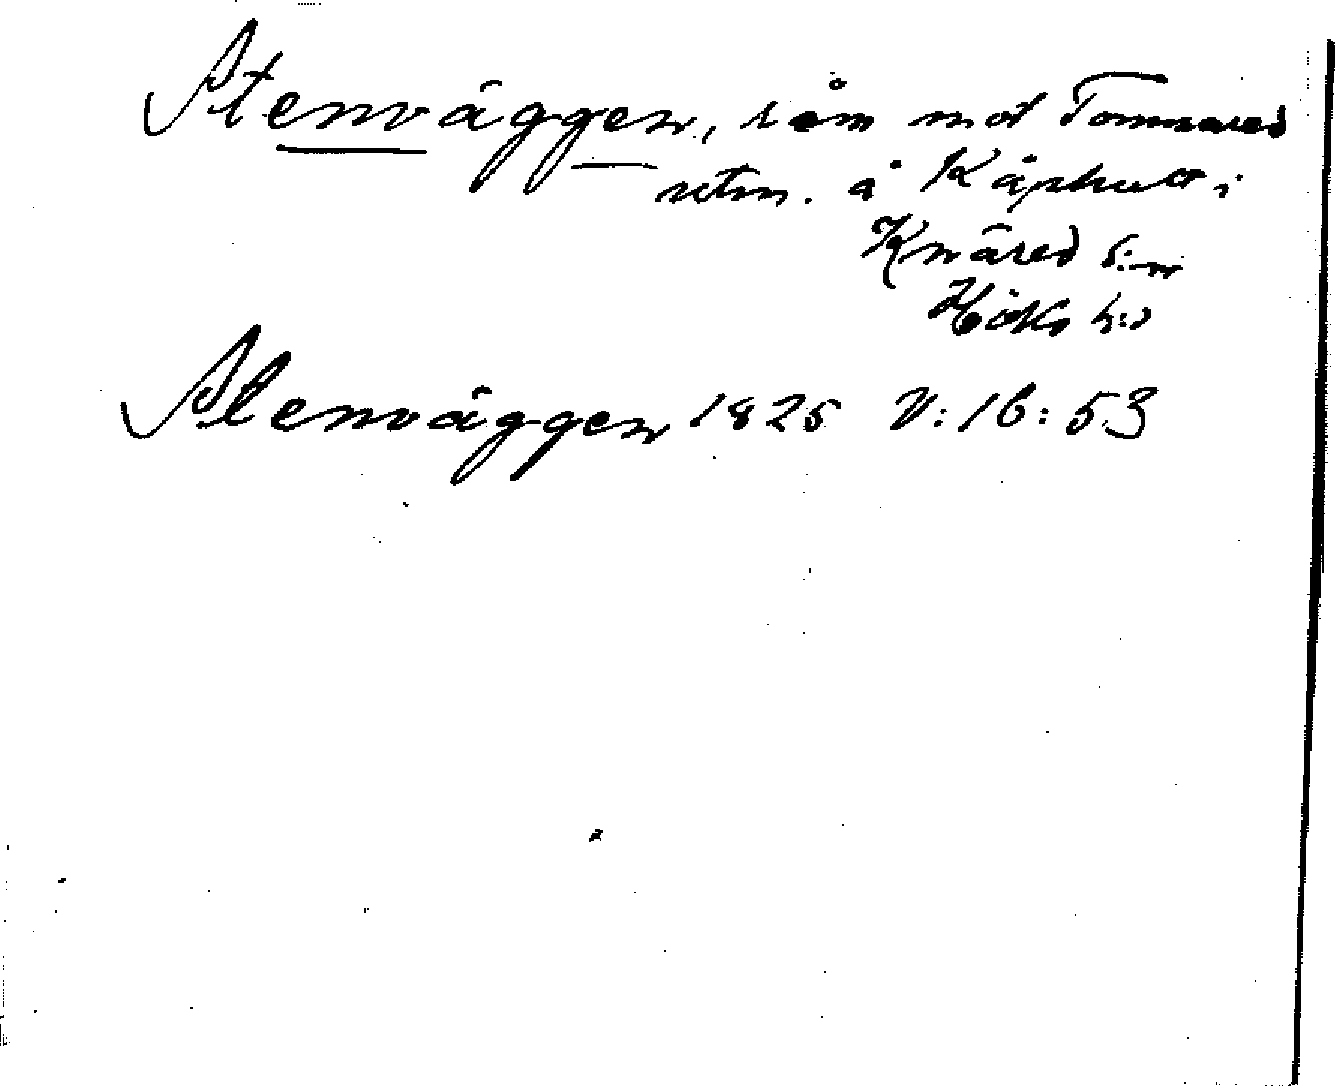 Stenväggen, råm mot Tommared
utm. å Kåphult i
Knäred s:n
Höks h:d
Stenväggen 1825 V:16:53